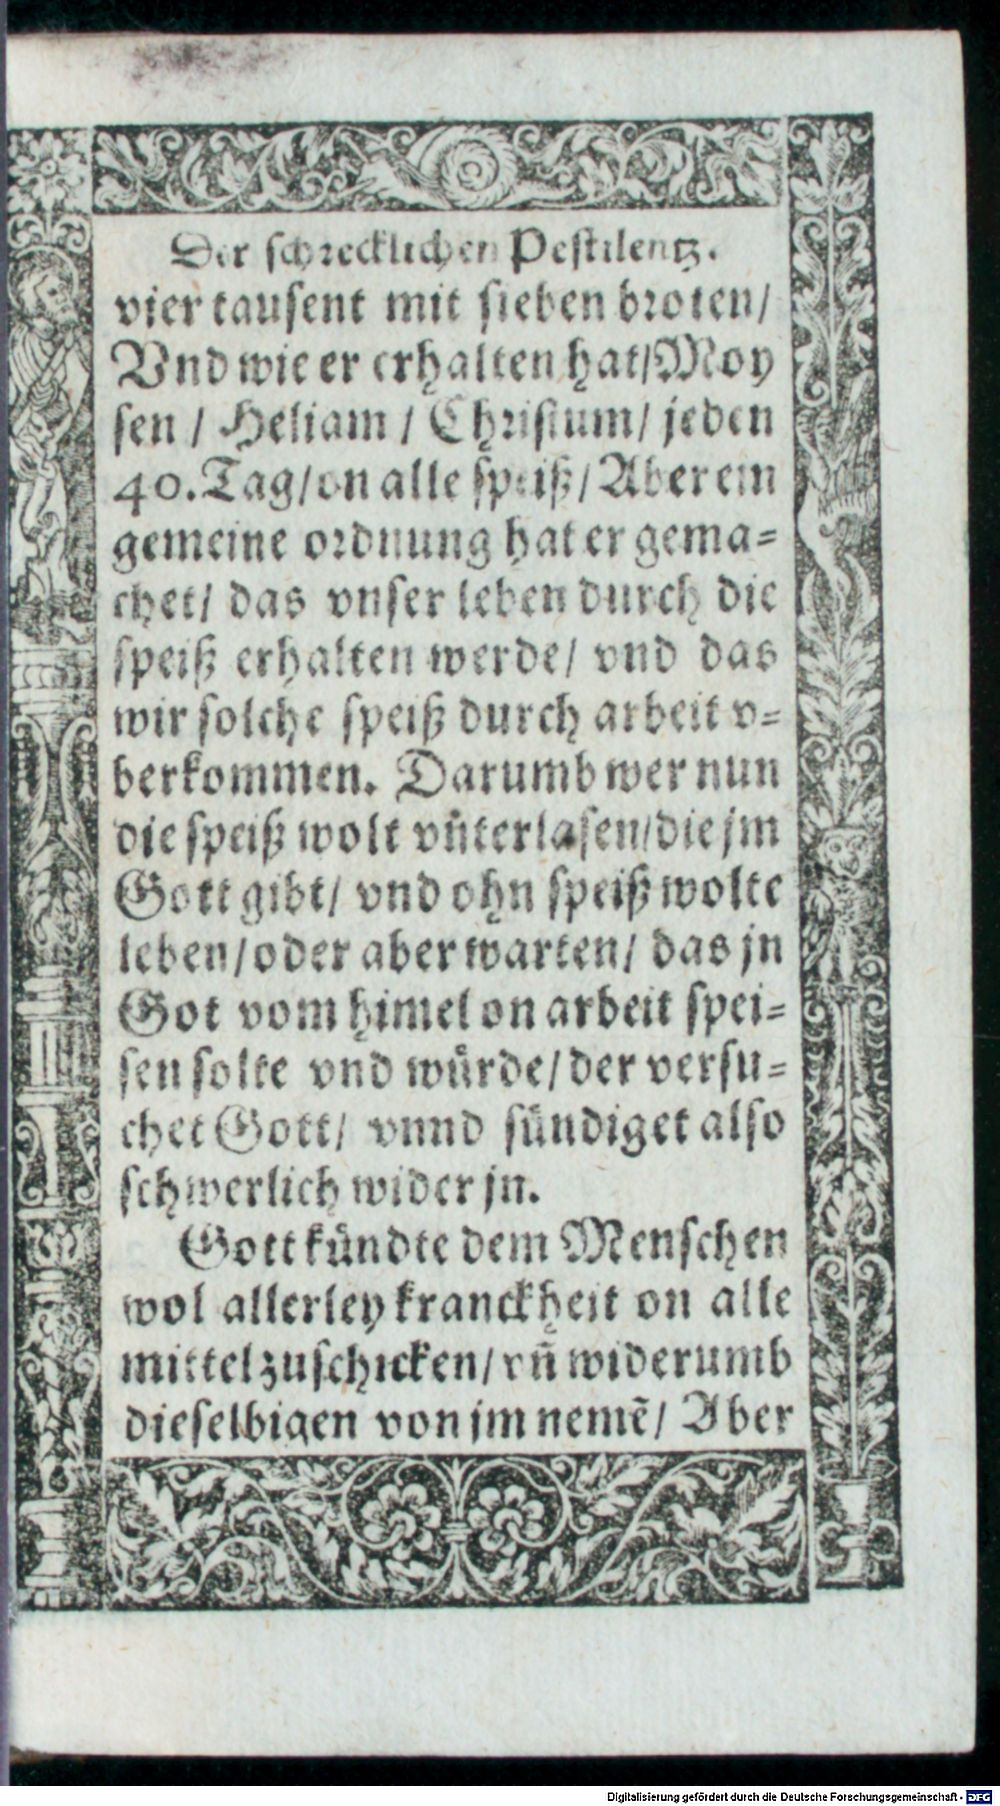 Der schrecklichen Pestilentz.
vier tausent mit sieben broten/
Vnd wie er erhalten hat/Moy
sen / Heliam / Christum/ jeden
40. Tag/on alle speiß/ Aber ein
gemeine ordnung hat er gema=
chet/ das vnser leben durch die
speiß erhalten werde/ vnd das
wir solche speiß durch arbeit v=
berkommen. Darumb wer nun
die speiß wolt vnterlasen/die jm
Gott gibt/ vnd ohn speiß wolte
leben/oder aber warten/ das jn
Got vom himel on arbeit spei=
sen solte vnd wuͤrde/der versu=
chet Gott/ vnnd suͤndiget also
schwerlich wider jn.
Gott kuͤndte dem Menschen
wol allerley kranckheit on alle
mittel zuschicken/ vñ widerumb
dieselbigen von jm nemẽ/ Aber
Digitalisierung gefördert durch die Deutsche Forschungsgemeinschaft - DFG